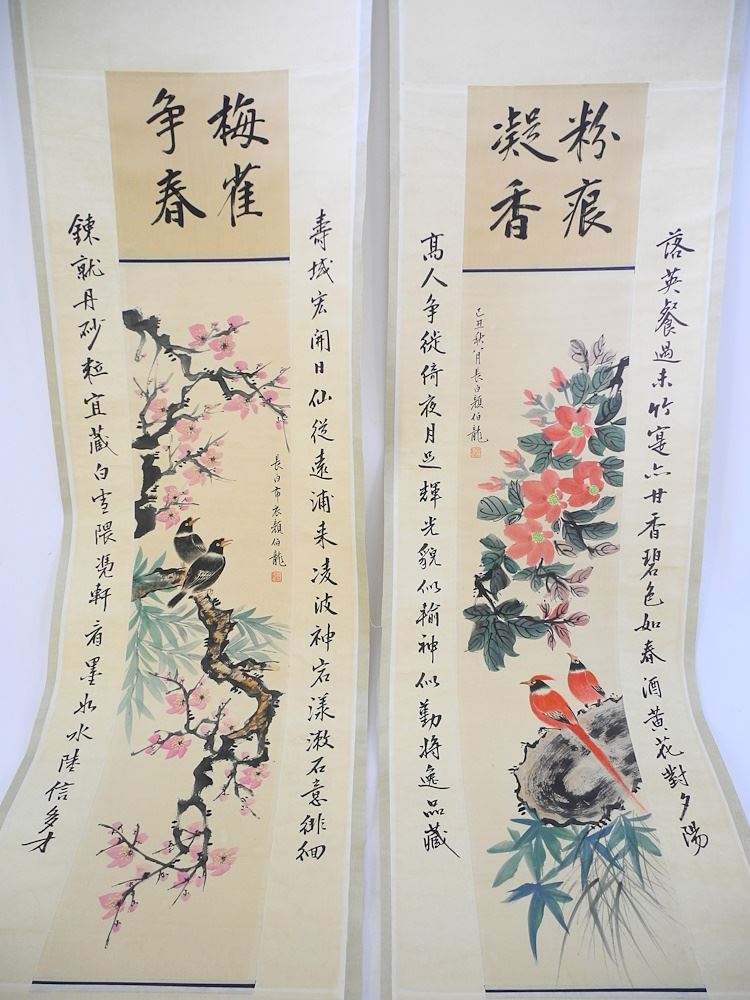 粉痕
凝香
落英餐過未竹寔亦甘香碧色如春酒黃花對夕陽
己丑秋八月長白顏伯龍
髙人争徙倚夜月足輝光貌似輸神似勤將逸品藏
梅雀
争春
壽域宏開日仙從遠浦来凌波神宕漾漱石意徘徊
長白布衣顏伯龍
鍊就丹砂粒宜藏白雪隈憑軒看墨妙水陸信多才